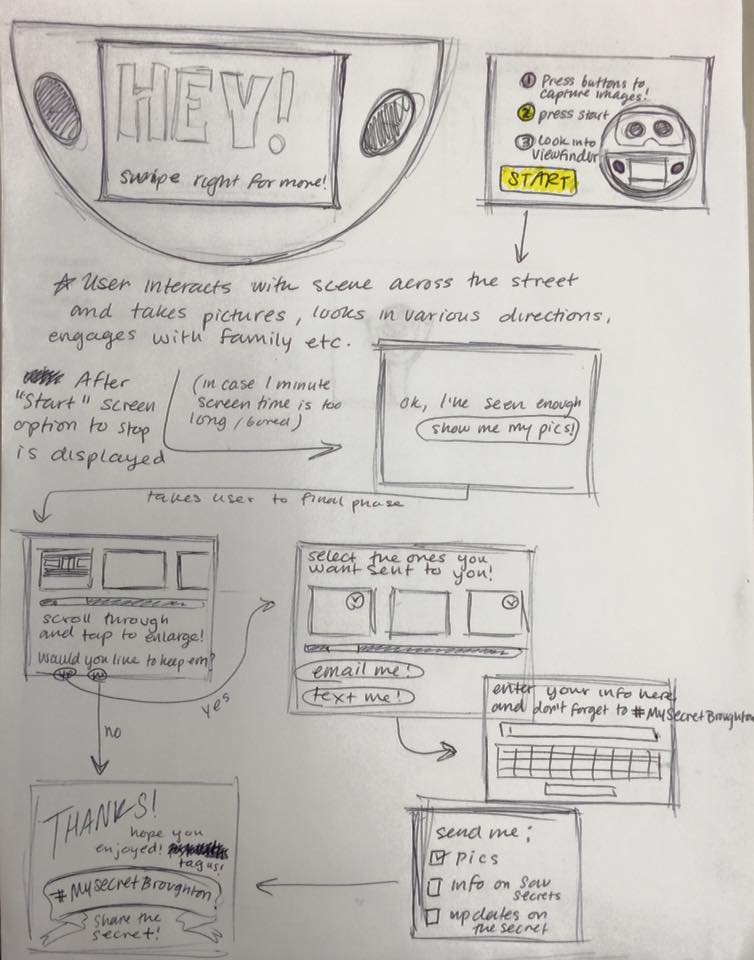 HEY!
swipe right for more!
1 Press buttons to
capture images!
2 press start
3 Look into
viewfinder
START
☆ User interacts with scene across the street
and takes pictures, looks in various directions,
engages with family etc.
After
"Start" screen
option to stop
is displayed
(in case 1 minute
screen time is too
long / bored)
ok, I've seen enough
show me my pics!
takes user to final phase
scroll through
and tap to enlarge!
Would you like to keep em?
yes no
yes
no
select the ones you
want sent to you!
email me!
text me!
enter your info here
and don't forget to #MySecretBroughton
send me:
pics
info on Sav
secrets
updates on
the secret
THANKS!
hope you
enjoyed!
tag us!
#MySecretBroughton
share the
secret!